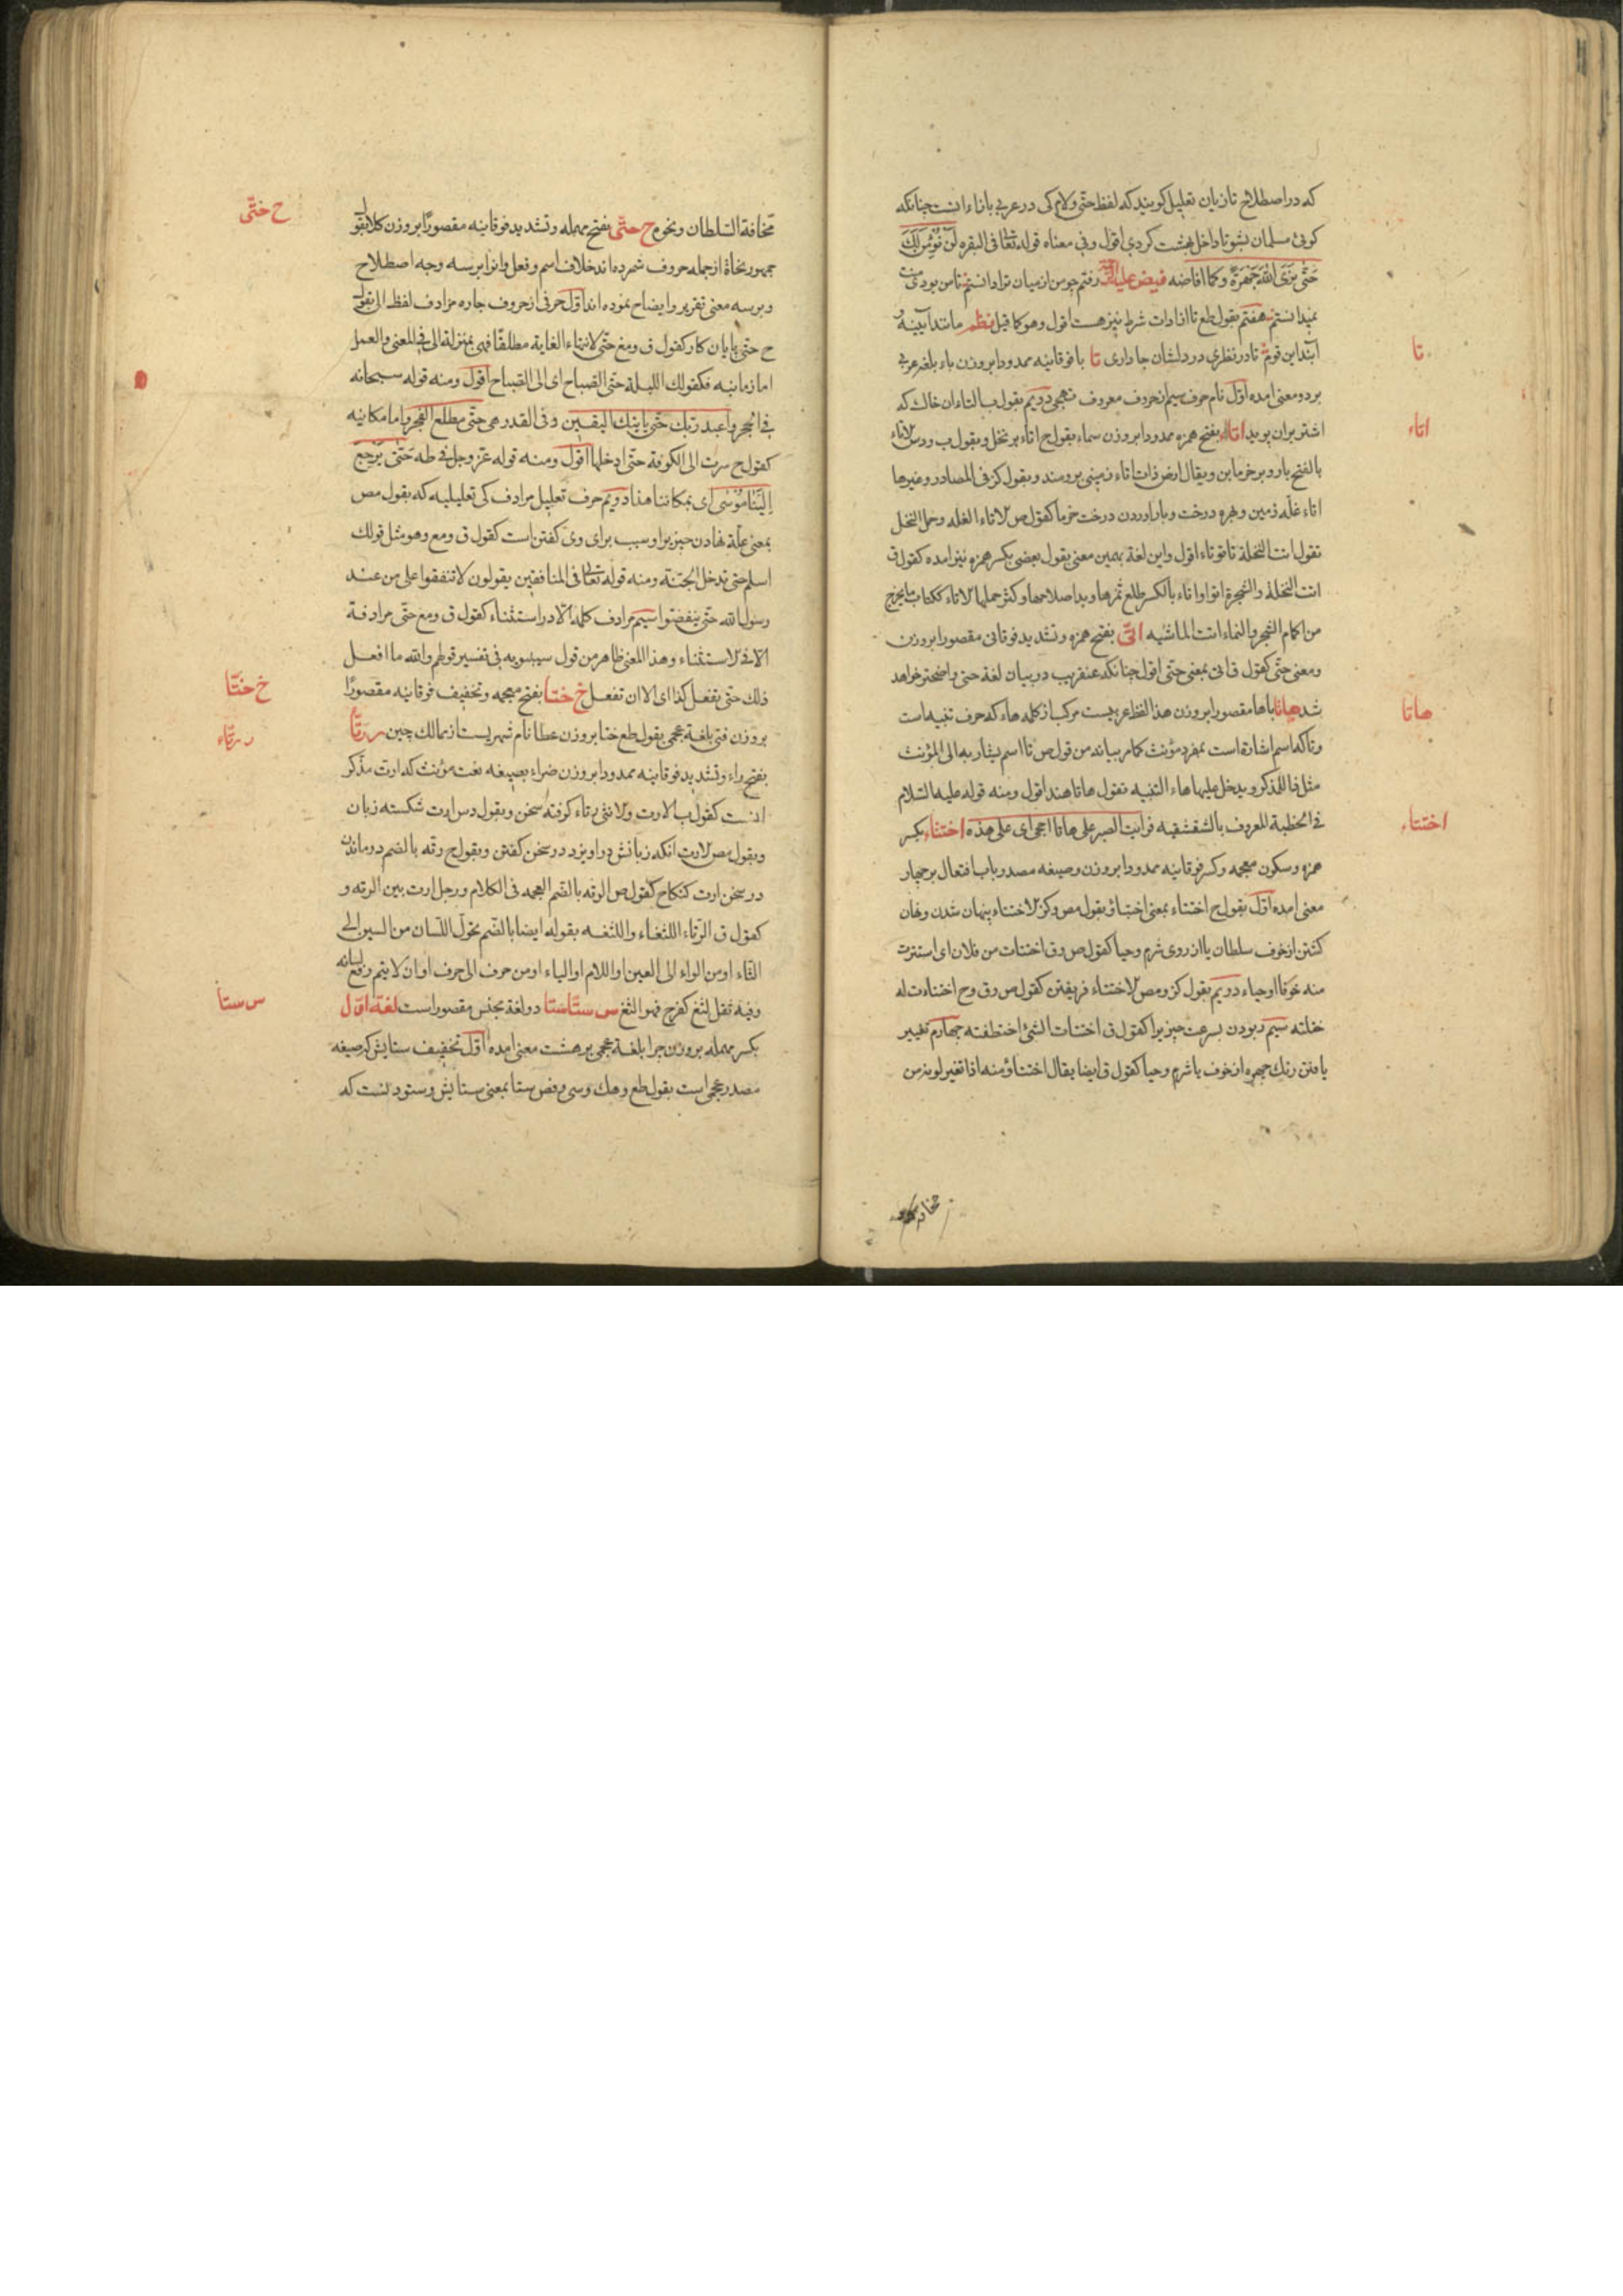 که در اصطلاح تازیان تعلیل کویند که لفظ حتی ولام کی در عربی بازاء انست چنانکه
کوئی مسلمان بشو تا داخل بهشت کردی اقول وفی معناه قوله تعالی فی البقره لَن نُؤْمِنَ لَكَ
حَتّٰی نَرَی اللّٰهَ جَهْرَةً وکما افاضه فیض علیه رفتم چو من از میان ترا دانستم تا من بودم
نمیدانستم هفتم بقول طع تا از ادات شرط نیز هست اقول وهو کما قیل نظم مانند آیینه
تا در نظری در دلشان جا داری تا با فوقانیه ممدودا بروزن باء بلغه عربی
بر دو معنی امده اوّل نام حرف سیم از حروف معروف تهجی دویم بقول ب التاء ان خاك که
اشتر بران بوید اتاء بفتح همزه ممدودا بروزن سماء بقول ح اتاء بر نخل وبقول ب ودس الاتاء
بالفتح بار وبر خرمابن ویقال ارض ذات اتاء زمینی برومند وبقول کز فی المصادر وغیرها
اتاء غلّه زمین وبهره درخت وبار اوردن درخت خرما کقول ص الاتاء الغله وحمل النخل
تقول اتت النخلة تاتو تاء اقول واین لغة بهمین معنی بقول بعضی بکسر همزه نیز امده کقول ق
اتت النخلة والشجرة اتوا واتاء بالکسر طلع ثمرها وبدا صلاحها وکثر حملها الاتاء ککتاب ما یخرج
من اکام الشجر والنماء اتت الماشیه اتّی بفتح همزه وتشدید فوقانی مقصورا بروزن
ومعنی حتّی کقول ق اتی بمعنی حتّی اقول چنانکه عنقریب در بیان لغة حتی واضحتر خواهد
شد هاتا باها مقصورا بروزن هذا لفظ عربیست مرکب از کلمه هاء که حرف تنبیه است
وتا که اسم اشارة است بمفرد مؤنث کما مر بیانه من قول ص تا اسم یشار به الی المؤنث
مثل ذا للمذکر ویدخل علیها هاء التنبیه تقول هاتا هند اقول ومنه قوله علیه السّلام
فی الخطبة المعروف بالشقشقیه فرایت الصبر علی هاتا احجی ای علی هذه اختتاء بکسر
همزه وسکون معجمه وکسر فوقانیه ممدودا بروزن وصیغه مصدر باب افتعال بر چهار
معنی امده اوّل بقول ح اختتاء بمعنی اختباؤ بقول مص وکز الاختتاء پنهان شدن ونهان
کشتن از خوف سلطان یا از روی شرم وحیا کقول ص وق اختتات من فلان ای استترت
منه خوفا او حیاء دویم بقول کز ومص الاختتاء فریفتن کقول ص وق وح اختتاءت له
ختلته سیم ربودن بسرعت چیزیرا کقول ق اختتات الشئ اختطفته چهارم تغییر
یافتن رنك چهره از خوف یا شرم وحیا کقول ق ایضا یقال اختتاؤ منه اذا تغیر لونه من
تا
اتاء
هاتا
اختتاء
مخافة السّلطان ونحوه ح حتّی بفتح مهمله وتشدید فوقانیه مقصورًا بروزن کلا بقول
جمهور نحاة از جمله حروف شمرده اند خلاف اسم وفعل وانرا بر سه وجه اصطلاح
وبر سه معنی تقریر وایضاح نموده اند اوّل حرفی از حروف جاره مرادف لفظ الی بقول
ح حتی پایان کار کقول ق ومغ حتّی لانتهاء الغایة مطلقًا فهی بمنزلة الی فی المعنی والعمل
اما زمانیه فکقولك اللیلة حتی الصّباح ای الی الصّباح اقول ومنه قوله سبحانه
فی الحجر واعبد ربّك حتّی یاتیك الیقین وفی القدر هی حتّی مطلع الفجر واما مکانیه
کقول ح سرت الی الکوفة حتّی ادخلها اقول ومنه قوله عزّ وجل فی طه حَتّٰی یَرْجِعَ
اِلَیْنٰا مُوسٰی ای بمکاننا هذا دویم حرف تعلیل مرادف کی تعلیلیه که بقول مص
بمعنی علّة نهادن چیزیرا وسبب برای وی کفتن است کقول ق ومع وهو مثل قولك
اسلم حتی تدخل الجنّة ومنه قوله تعالی فی المنافقین یقولون لا تنفقوا علی من عند
رسول الله حتّی ینفضّوا سیم مرادف کلمه الّا در استثناء کقول ق ومع حتّی مرادفة
الا فی الاستثناء وهذا المعنی ظاهر من قول سیبویه فی تفسیر قولهم والله ما افعل
ذلك حتی تفعل کذا ای الا ان تفعل خ ختا بفتح معجمه وتخفیف فوقانیه مقصورًا
بروزن فتی بلغة عجمی بقول طع ختا بروزن عطا نام شهریست از ممالك چین ر رتّا
بفتح راء وتشدید فوقانیه ممدودا بروزن ضراء بصیغه نعت مؤنث که ارت مذکر
انست کقول ب الارت والانثی رتاء کرفته سخن وبقول دس ارت شکسته زبان
وبقول مص الارت انکه زبانش دراویزد در سخن کفتن وبقول ح رته بالضم درماندن
در سخن ارت کنکاح کقول ص الرته بالضم العجمه فی الکلام ورجل ارت بین الرته و
کقول ق الرتّاء اللثغاء واللثغه بقوله ایضا بالضّم تحوّل اللّسان من السین الی
الثاء او من الراء الی الغین او اللام او الیاء او من حرف الی حرف او ان لا یتم رفع لسانه
وفیه ثقل لثغ کفرح فهو الثغ س ستا ستا دو لغة بجنس مقصورا است لغة اوّل
بکسر مهمله بروزن چرا بلغة عجمی بر هشت معنی امده اوّل تخفیف ستایش که صیغه
مصدر عجمی است بقول طع وهك وسی وفص ستا بمعنی ستایش وستودنست که
ح حتّی
خ ختّا
ر رتّاء
س ستا